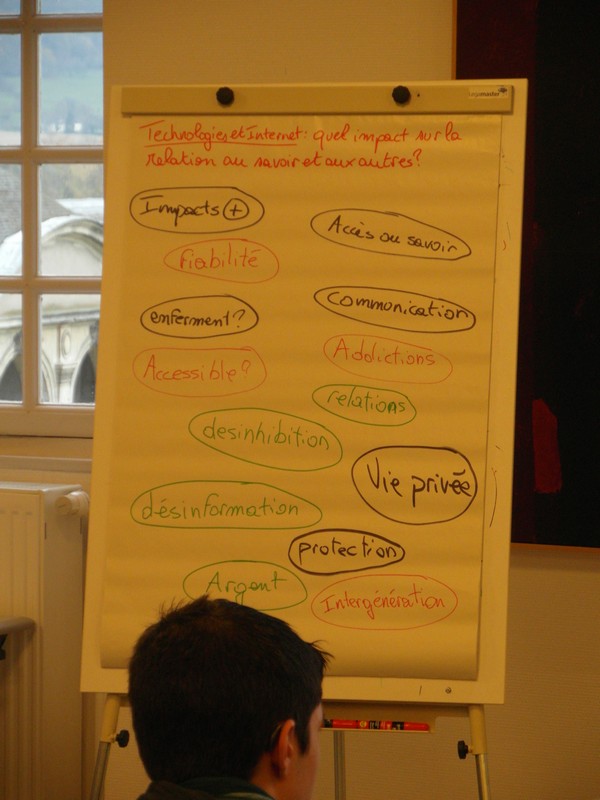 Technologies et Internet : quel impact sur la
relation au savoir et aux autres ?
Impacts +
Accès au savoir
Fiabilité
enferment ?
communication
Accessible ?
Addictions
relations
desinhibition
Vie privée
désinformation
protection
Argent
Intergénération